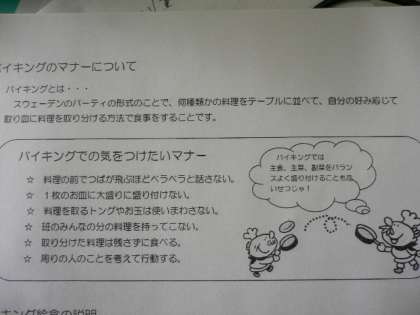 バイキングのマナーについて
バイキングとは・・・
スウェーデンのパーティの形式のことで、何種類かの料理をテーブルに並べて、自分の好み応じて
取り皿に料理を取り分ける方法で食事をすることです。
バイキングでの気をつけたいマナー
☆ 料理の前でつばが飛ぶほどペラペラと話さない。
☆ 1枚のお皿に大盛りに盛り付けない。
☆ 料理を取るトングやお玉は使いまわさない。
☆ 班のみんなの分の料理を持ってこない。
☆ 取り分けた料理は残さずに食べる。
☆ 周りの人のことを考えて行動する。
バイキングでは
主食、主菜、副菜をバラン
スよく盛り付けることもた
いせつじゃ!
キング給食の説明